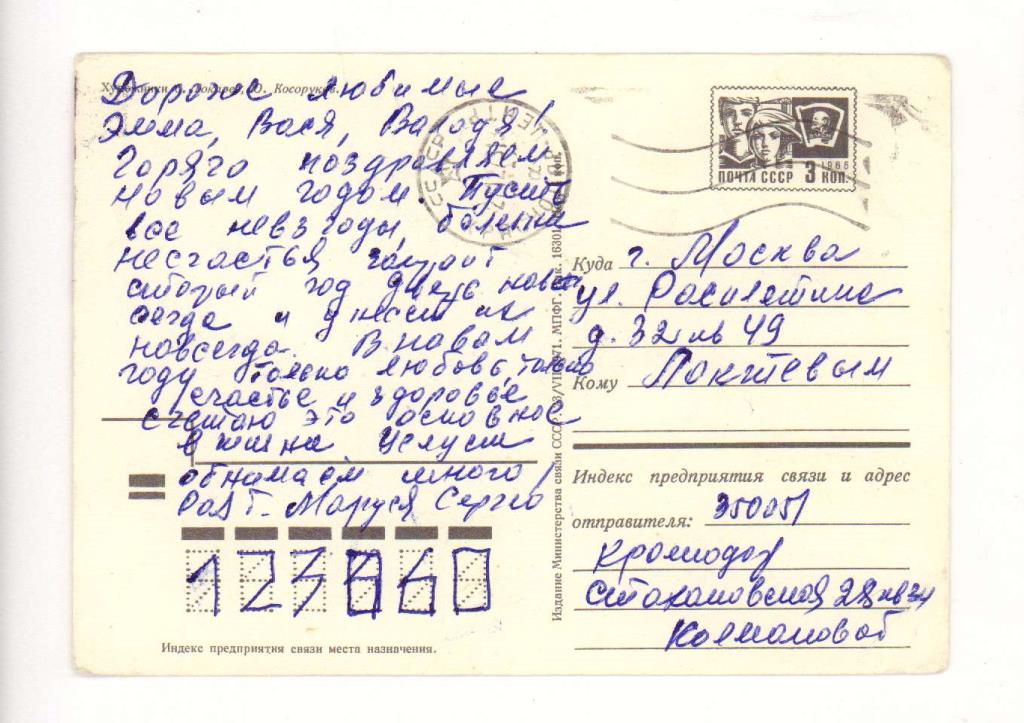 Художники Ю. Косоруков.
Дорогие любимые
Эмма, Вася, Валодя!
Горячо поздравляем
новым годом. Пусть
все невзгоды, болезни
несчастья заберёт
старый год Дветь
и унесёт их
навсегда. В новам
году только любовь, только
счастье и здоровье
считаю это основное
в жизни Целуем
обнимаем много
Рая Т. Маруся Сергей
123860
Индекс предприятия связи места назначения.
СССР
ПОЧТА СССР 3 КОП.
1966
Издание Министерства связи СССР. МПФГ. 1630
Куда г. Москва
ул. Расплетина
д. 32 кв 49
Кому Локтевым
Индекс предприятия связи и адрес
отправителя: 350051
Краснодар
Стахановская 28 кв 34
Колмаковой